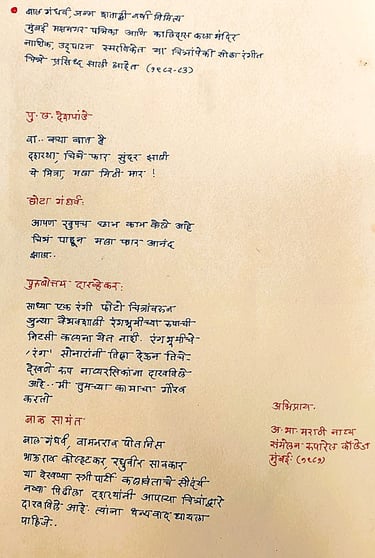 बाल गंधर्व, जन्म शताब्दी वर्षा निमित्य
मुंबई महानगर पत्रिका आणि कालिदास कला मंदिर
नाशिक, उद्घाटन स्मरणिकेत या चित्रांपैकी सोळा रंगीत
चित्रे प्रसिध्द झाली आहेत (१९८२-८३)
पु. ल. देशपांडे
वा.. क्या बात है
दशरथा, चित्रे फार सुंदर झाली
ये मित्रा, मला मिठी मार !
छोटा गंधर्व.
आपण खुपच छान काम केले आहे
चित्रं पाहून मला फार आनंद
झाला..
पुरुषोत्तम दारव्हेकर:
साध्या एक रंगी फोटो चित्रांवरून
जुन्या वैभवशाली रंगभूमीच्या रुपाची
निटसी कल्पना येत नाही. रंगभूमीचे
'रंग' सोनारांनी तिला देऊन तिचे
देखणे रूप नाट्यरसिकांना दाखविले
आहे.. मी तुमच्या कामाचा गौरव
करतो
बाळ सामंत
बाल गंधर्व, वामनराव पोतनिस
भाऊराव कोल्हटकर, रघुवीर सावकार
या देखण्या स्त्री पार्टी कलावंताचे सौंदर्य
नव्या पिढीला दशरथांनी आपल्या चित्राद्वारे
दाखविले आहे. त्यांना धन्यवाद द्यायला
पाहिजे..
अभिप्राय.
अ. भा. मराठी नाट्य
संमेलन रुपारेल कॉलेज
मुंबई. (१९८७)